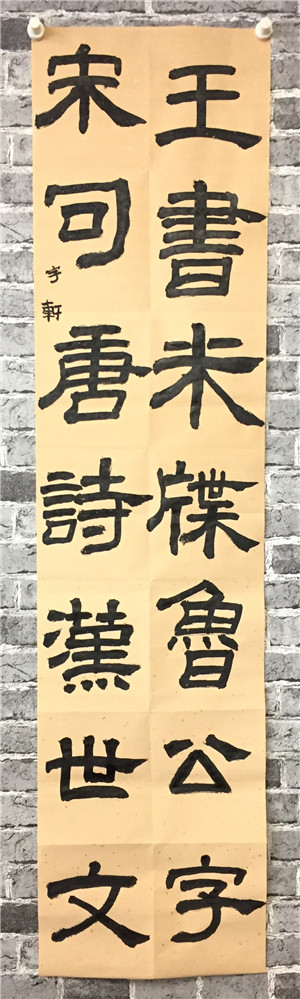 王書米牒魯公字
宋句唐詩漢世文
宇軒